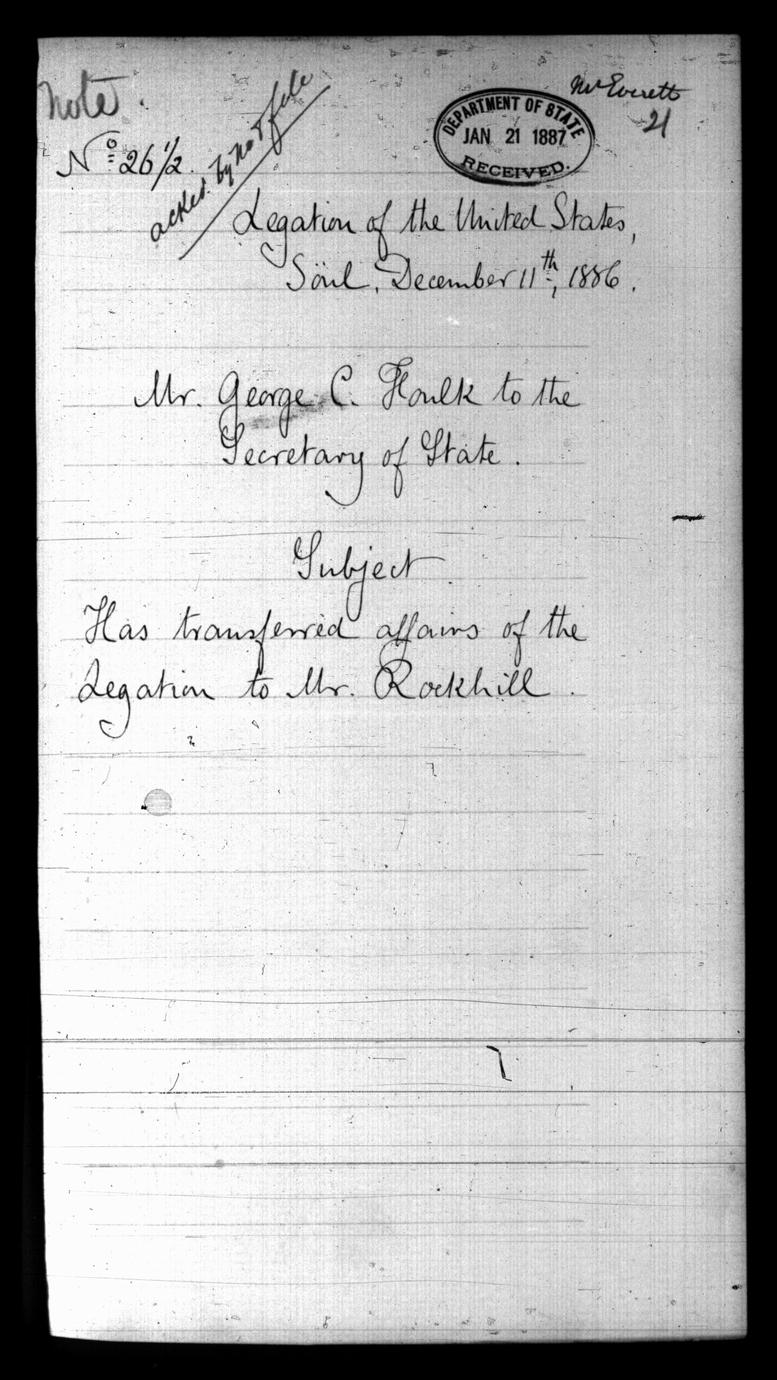 Note.
Nº 26½.
acked. by No 8 file
Mr Everett
21
DEPARTMENT OF STATE
JAN 21 1887
RECEIVED.
Legation of the United States,
Söul, December 11th, 1886.
Mr. George C. Foulk to the
Secretary of State.
Subject
Has transferred affairs of the
Legation to Mr. Rockhill.